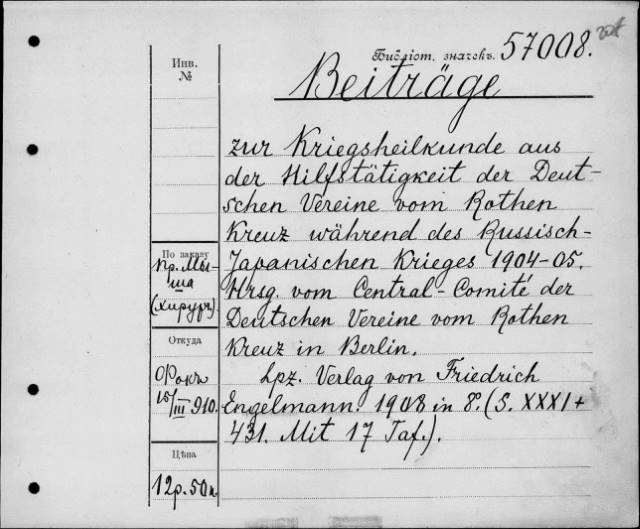 Инв.
№
Библіот. значекъ. 57008.
Beiträge
zur Kriegsheilkunde aus
der Hilfstätigkeit der Deut-
schen Vereine vom Rothen
Kreuz während des Russisch-
Japanischen Krieges 1904-05.
Hrsg. vom Central-Comité der
Deutschen Vereine vom Rothen
Kreuz in Berlin.
Lpz. Verlag von Friedrich
Engelmann. 1908 in 8°. (S. XXXI +
431. Mit 17 Taf.).
По заказу
пр. Мы-
ша
(хирург)
Откуда
Фокъ
15/III 910.
Цѣна
12р. 50к.